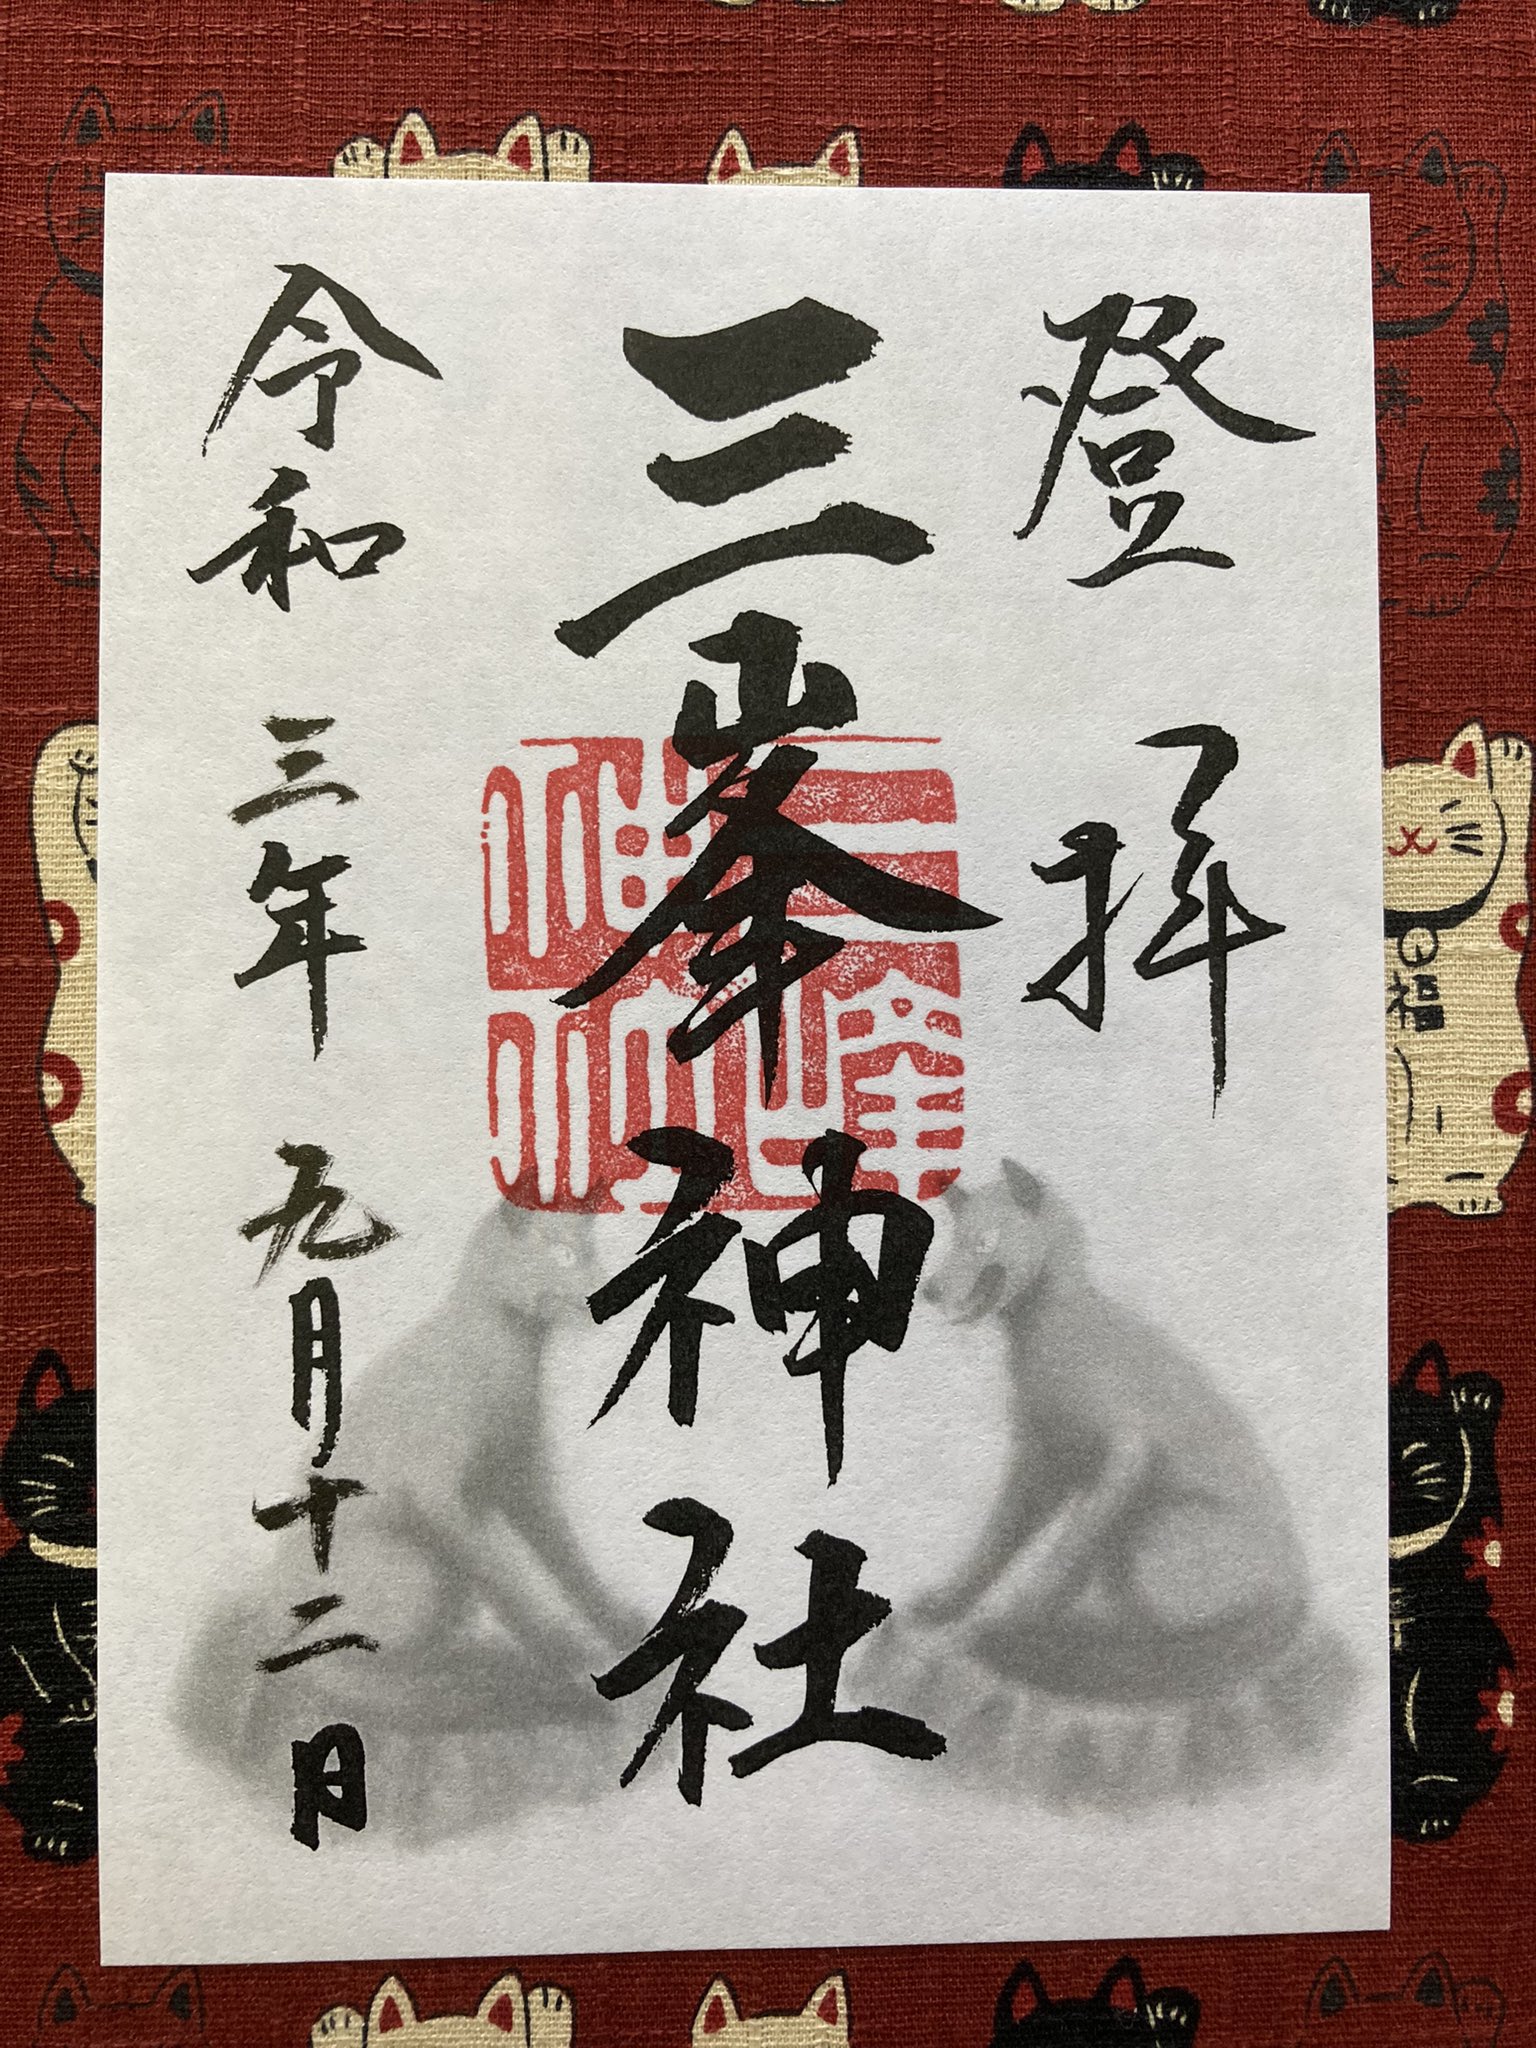 登拝
三峯神社
三峰神社
令和三年九月十二日
福